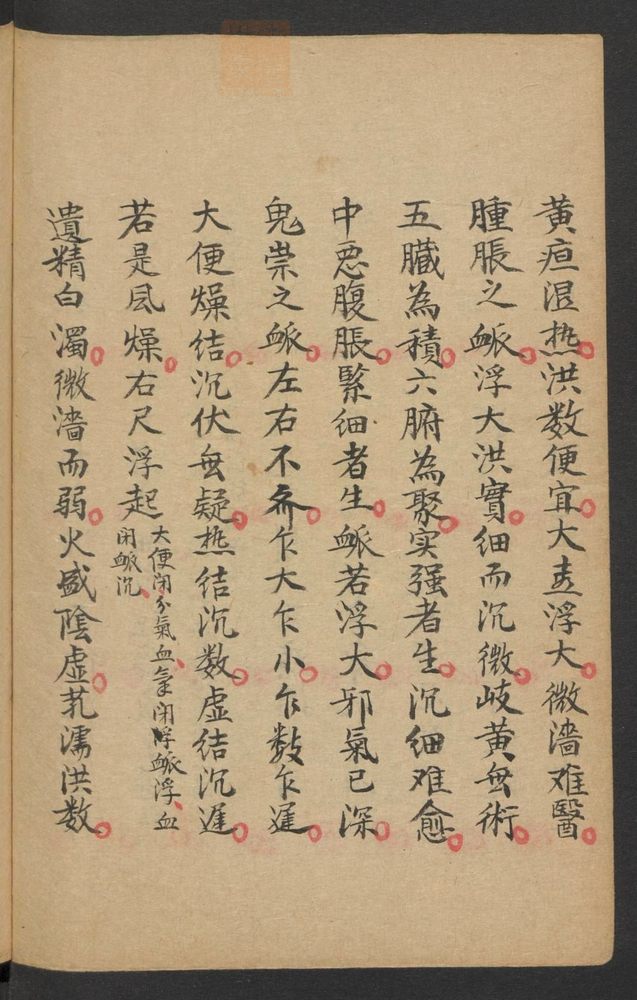 黃疸湿热洪数便宜大忌浮大微濇难醫
腫脹之衇浮大洪實細而沉微岐黃無術
五臟為積六腑為聚实强者生沉细难愈
中恶腹脹緊细者生衇若浮大邪氣已深
鬼祟之衇左右不齐乍大乍小乍数乍遲
大便燥结沉伏無疑热结沉数虚结沉遲
若是風燥右尺浮起
大便闭分氣血氣闭浮衇浮血
闭衇沉
遺精白濁微濇而弱火盛陰虚芤濡洪数